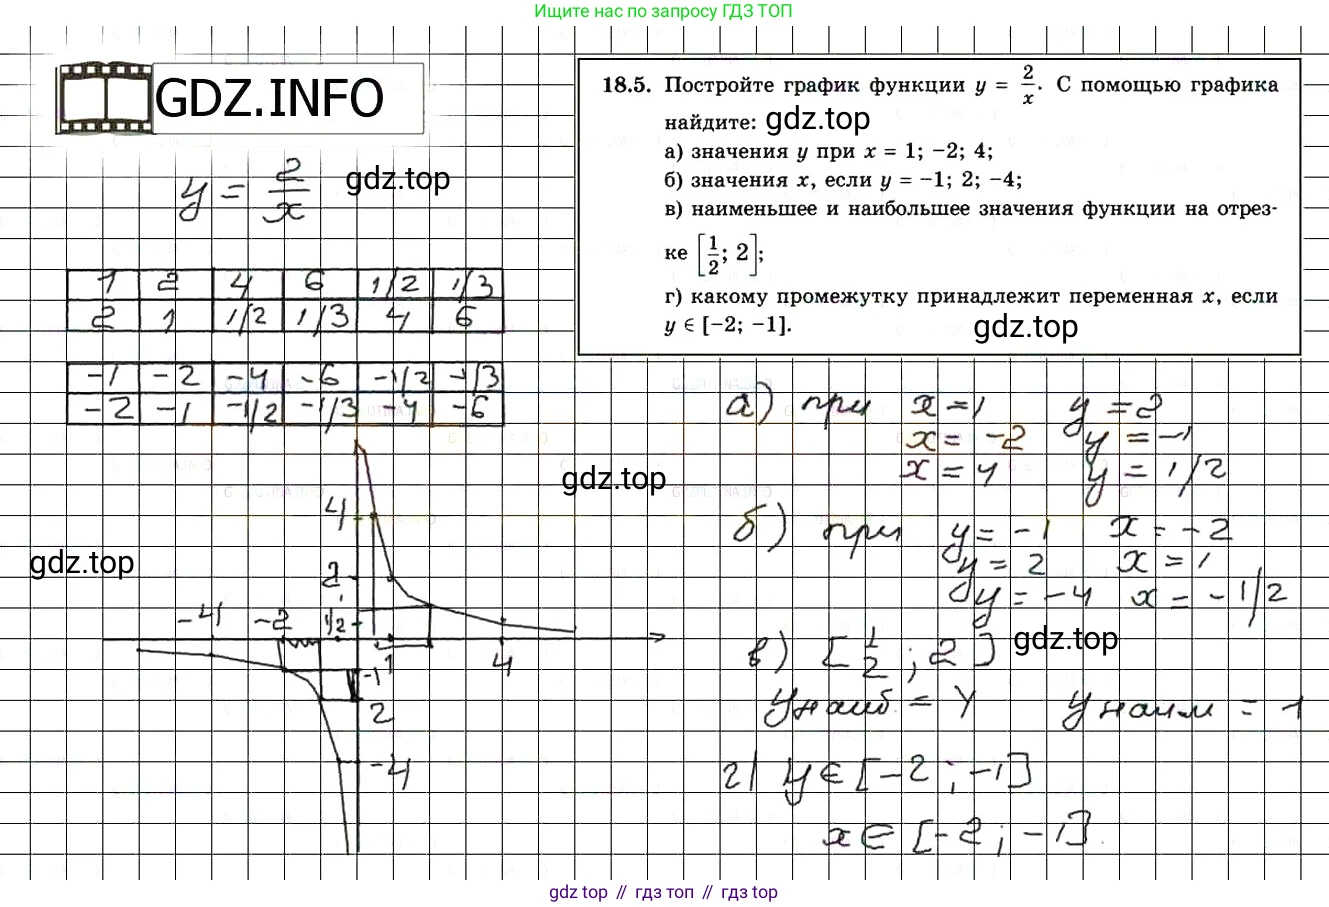 Ищите нас по запросу ГДЗ ТОП
GDZ.INFO
18.5. Постройте график функции y = 2/x. С помощью графика
найдите: gdz.top
а) значения y при x = 1; −2; 4;
б) значения x, если y = −1; 2; −4;
в) наименьшее и наибольшее значения функции на отрез-
ке [1/2; 2];
г) какому промежутку принадлежит переменная x, если
y ∈ [−2; −1].
gdz.top
y = 2/x gdz.top
1 2 4 6 1/2 1/3
2 1 1/2 1/3 4 6
-1 -2 -4 -6 -1/2 -1/3
-2 -1 -1/2 -1/3 -4 -6
а) при x = 1 y = 2
x = -2 y = -1
x = 4 y = 1/2
gdz.top
б) при y = -1 x = -2
y = 2 x = 1
y = -4 x = -1/2
gdz.top
4
2
-4 -2 1/2
1 4
-1
2
-4
в) [1/2; 2] gdz.top
yнаиб = 4 yнаим = 1
г) y ∈ [-2; -1]
x ∈ [-2; -1].
gdz top // гдз топ // гдз top